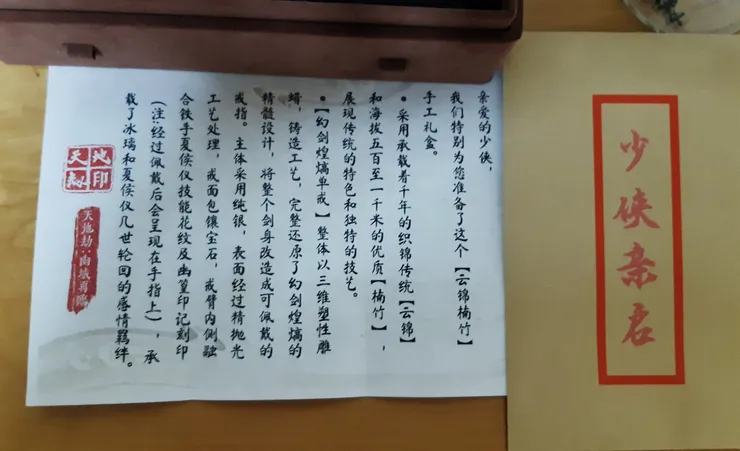 少侠亲启
亲爱的少侠，
我们特别为您准备了这个【云锦楠竹】
手工礼盒。
• 采用承载着千年的织锦传统【云锦】
和海拔五百至一千米的优质【楠竹】，
展现传统的特色和独特的技艺。
•【幻剑煌熇单戒】整体以三维塑性雕
缙，铸造工艺，完整还原了幻剑煌熇的
精髓设计，将整个剑身改造成可佩戴的
戒指。主体采用纯银，表面经过精抛光
工艺处理，戒面包镶宝石，戒臂内侧融
合铁手夏侯仪技能花纹及幽篁印记刻印
（注：经过佩戴后会呈现在手指上），承
载了冰璃和夏侯仪几世轮回的感情羁绊。
地印
天劫
天地劫：幽城再临